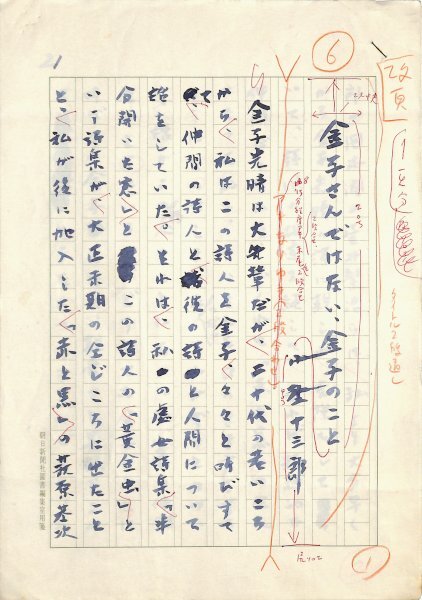 改頁
6
タイトル2段通し
金子さんではない、金子のこと
小野十三郎
金子光晴は大先輩だが、二十代の若いころ
から、私はこの詩人を金子、々々と呼びすて
て仲間の詩人と彼の詩と人間について
話をしていた。それは、私の処女詩集「半
分開いた窓」とこの詩人の「黄金虫」と
いう詩集が、大正末期の仝じころに出たこと
と、私が後に加入した「赤と黒」の萩原恭次
朝日新聞社図書編集室用箋
1
1